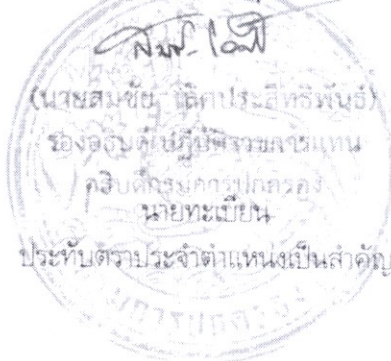 (นายสมชัย เลิศประสิทธิพันธ์)
รองอธิบดี ปฏิบัติราชการแทน
อธิบดีกรมการปกครอง
นายทะเบียน
ประทับตราประจำตำแหน่งเป็นสำคัญ
กรมการปกครอง